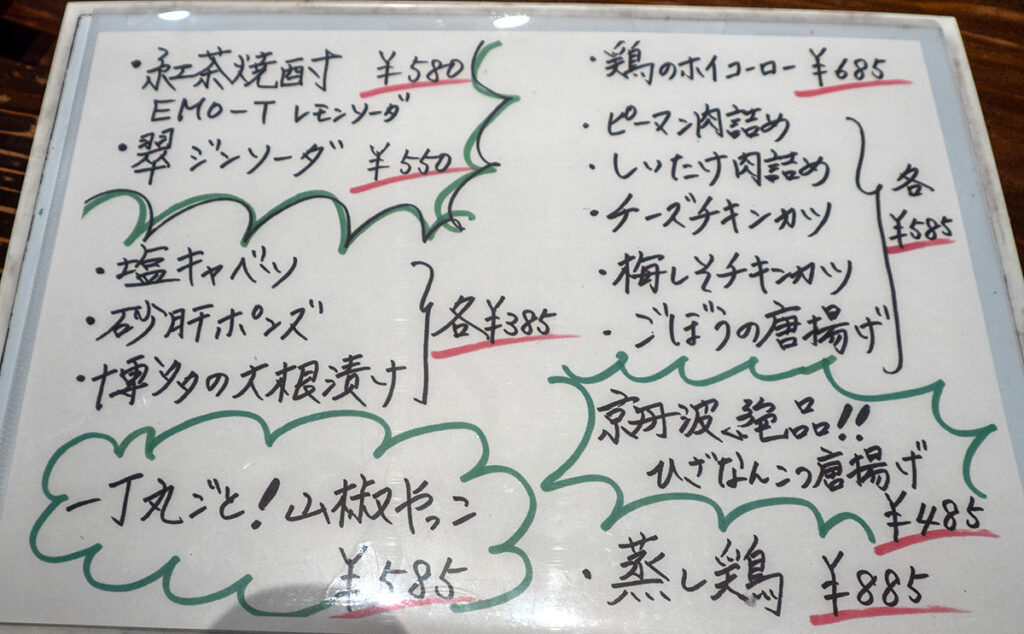 ・紅茶焼酎 ¥580
EMO-T レモンソーダ
・翠 ジンソーダ ¥550
・塩キャベツ
・砂肝ポンズ
・博多の大根漬け
各¥385
一丁丸ごと!山椒やっこ
¥585
・鶏のホイコーロー ¥685
・ピーマン肉詰め
・しいたけ肉詰め
・チーズチキンカツ
・梅しそチキンカツ
・ごぼうの唐揚げ
各
¥585
京丹波、絶品!!
ひざなんこつ唐揚げ
¥485
・蒸し鶏 ¥885